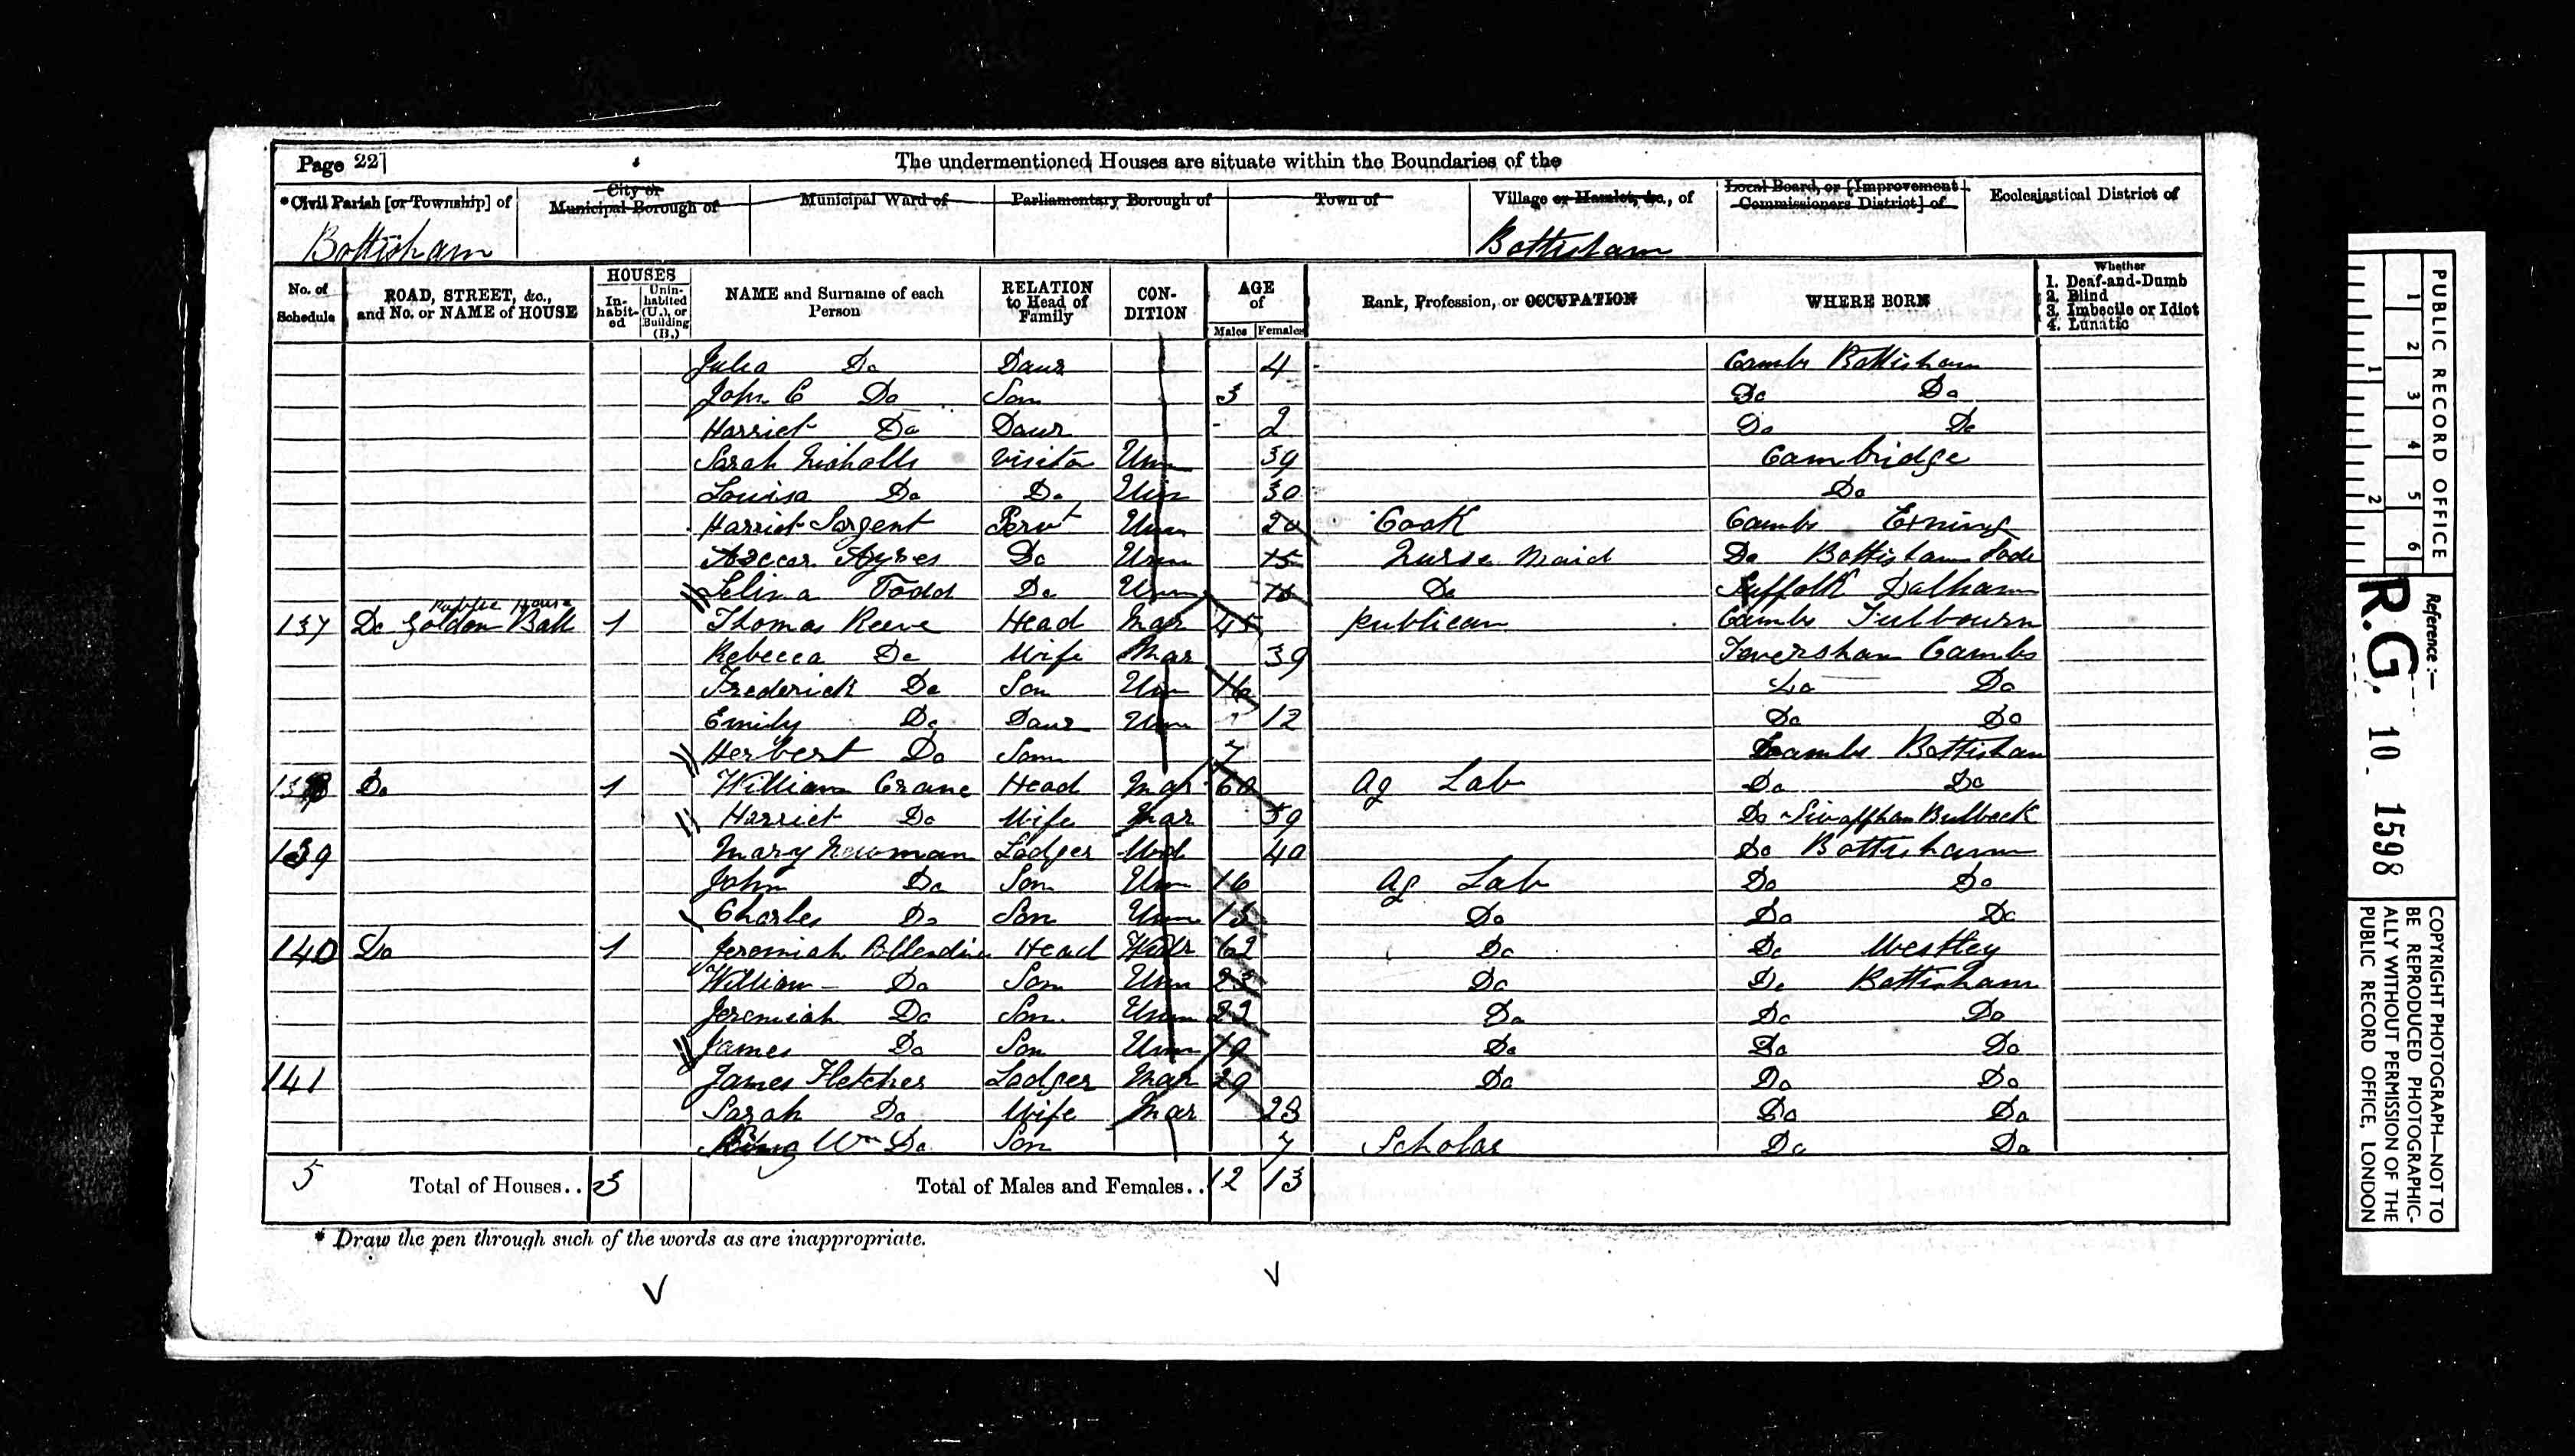 Page 22] The undermentioned Houses are situate within the Boundaries of the
*Civil Parish [or Township] of City or Municipal Borough of Municipal Ward of Parliamentary Borough of Town of Village or Hamlet, &c., of Local Board, or [Improvement Commissioners District] of Ecclesiastical District of
Bottisham Bottisham
No. of Schedule ROAD, STREET, &c., and No. or NAME of HOUSE HOUSES In-habit-ed Unin-habited (U.), or Building (B.) NAME and Surname of each Person RELATION to Head of Family CON-DITION AGE of Males Females Rank, Profession, or OCCUPATION WHERE BORN Whether 1. Deaf-and-Dumb 2. Blind 3. Imbecile or Idiot 4. Lunatic
Julia Do Daur 4 Cambs Bottisham
John C Do Son 3 Do Do
Harriet Do Daur 2 Do Do
Sarah Nicholls Visitor Unm 39 Cambridge
Louisa Do Do Unm 30 Do
Harriet Sargent Servt Unm 20 Cook Cambs Exning
Ayres Do Unm 15 Nurse Maid Do Bottisham Lode
Selina Todd Do Unm 16 Do Suffolk Dalham
137 Do Golden Ball Public House 1 Thomas Reeve Head Mar 45 publican Cambs Fulbourn
Rebecca Do Wife Mar 39 Teversham Cambs
Frederick Do Son Un 16 Do Do
Emily Do Daur Unm 12 Do Do
Herbert Do Son 7 Cambs Bottisham
138 Do 1 William Crane Head Mar 60 Ag Lab Do Do
Harriet Do Wife Mar 59 Do Swaffham Bulbeck
139 Mary Newman Lodger Wid 40 Do Bottisham
John Do Son Unm 16 Ag Lab Do Do
Charles Do Son Unm 13 Do Do Do
140 Do 1 Jeremiah Head Widr 62 Do Do Westley
William Do Son Unm 23 Do Do Bottisham
Jeremiah Do Son Unm 22 Do Do Do
James Do Son Unm 19 Do Do Do
141 James Fletcher Lodger Mar 29 Do Do Do
Sarah Do Wife Mar 28 Do Do
Wm Do Son 7 Scholar Do Do
5 Total of Houses.. 3 Total of Males and Females.. 12 13
* Draw the pen through such of the words as are inappropriate.
PUBLIC RECORD OFFICE
1 2 3 4 5 6
1 2
Reference:—
R.G. 10 1598
COPYRIGHT PHOTOGRAPH—NOT TO BE REPRODUCED PHOTOGRAPHIC-ALLY WITHOUT PERMISSION OF THE PUBLIC RECORD OFFICE, LONDON